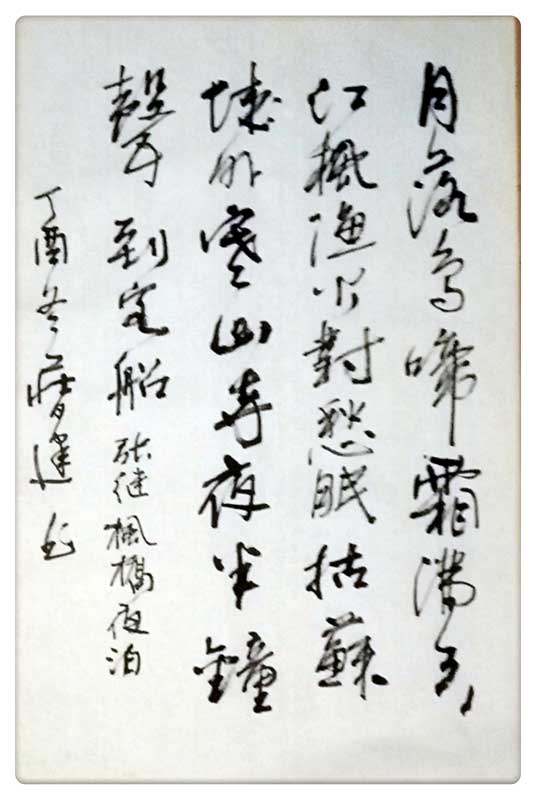 月落烏啼霜滿天
江楓漁火對愁眠姑蘇
城外寒山寺夜半鐘
聲到客船张继楓橋夜泊
丁酉冬建书